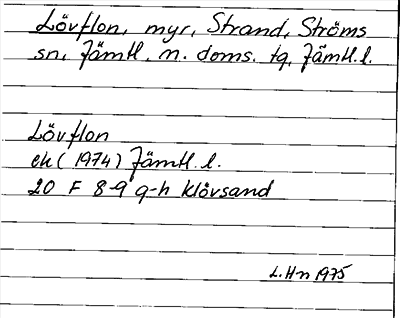 Lövflon, myr, Strand, Ströms
sn, Jämtl. n. doms. tg, Jämtl. l.
Lövflon
ek (1974) Jämtl. l.
20 F 8-9 g-h Klövsand
L. H-n 1975